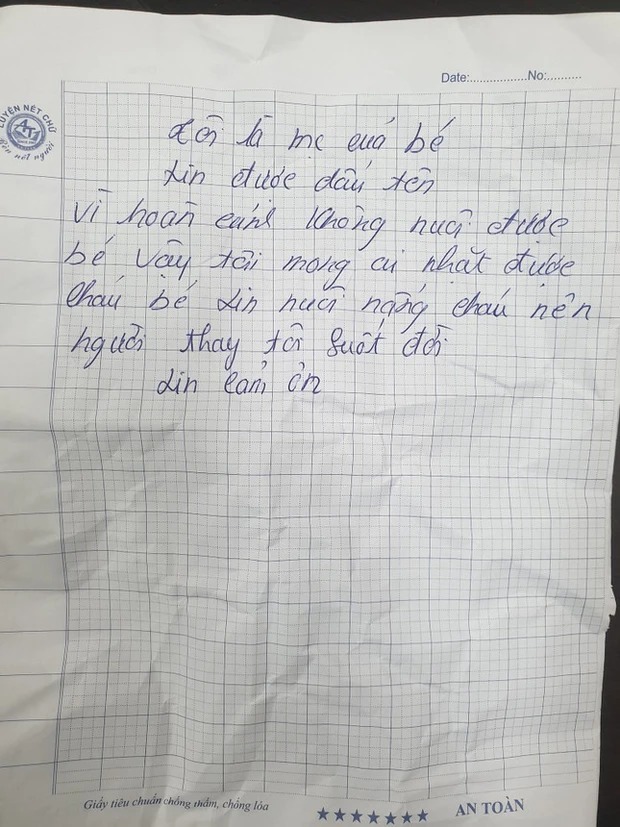 Date:................No:..........
LUYỆN NÉT CHỮ
Rèn nết người
Tôi là mẹ cuả bé
xin được dấu tên
Vì hoàn cảnh không nuôi được
bé vậy tôi mong ai nhặt được
cháu bé xin nuôi nấng cháu nên
người thay tôi suốt đời
xin cảm ơn
Giấy tiêu chuẩn chống thấm, chống lóa
★★★★★★★ AN TOÀN